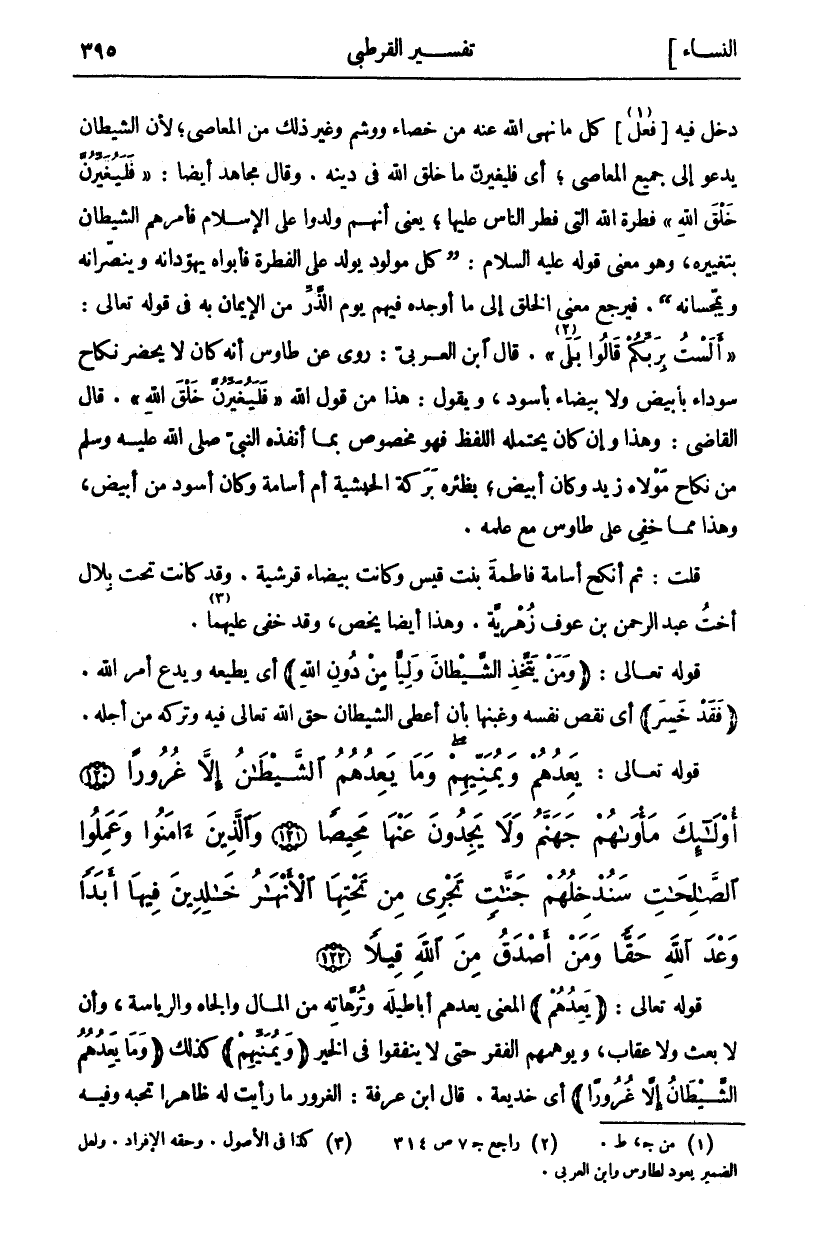 النساء ] تفسير القرطبى ٣٩٥
دخل فيه [ فعل (١) ] كل ما نهى الله عنه من خصاء ووشم وغير ذلك من المعاصى؛ لأن الشيطان
يدعو إلى جميع المعاصى ؛ أى فليغيرنّ ما خلق الله فى دينه . وقال مجاهد أيضا : « فَلَيُغَيِّرُنَّ
خَلْقَ اللهِ » فطرة الله التى فطر الناس عليها ؛ يعنى أنهم ولدوا على الإسلام فأمرهم الشيطان
بتغييره، وهو معنى قوله عليه السلام : ”كل مولود يولد على الفطرة فأبواه يهوّدانه وينصّرانه
ويمجّسانه“ . فيرجع معنى الخلق إلى ما أوجده فيهم يوم الذَّرِّ من الإيمان به فى قوله تعالى :
« أَلَسْتُ بِرَبِّكُمْ قَالُوا بَلَى (٢) » . قال آبن العربىّ : روى عن طاوس أنه كان لا يحضر نكاح
سوداء بأبيض ولا بيضاء بأسود ، ويقول : هذا من قول الله « فَلَيُغَيِّرُنَّ خَلْقَ اللهِ » . قال
القاضى : وهذا وإن كان يحتمله اللفظ فهو مخصوص بما أنفذه النبىّ صلى الله عليه وسلم
من نكاح مَوْلاه زيد وكان أبيض؛ بظئره بَرَكة الحبشية أم أسامة وكان أسود من أبيض،
وهذا مما خفى على طاوس مع علمه .
قلت : ثم أنكح أسامة فاطمةَ بنت قيس وكانت بيضاء قرشية . وقد كانت تحت بِلال
أختُ عبد الرحمن بن عوف زُهْرِيَّة . وهذا أيضا يخص، وقد خفى عليهما (٣) .
قوله تعالى : ﴿ وَمَنْ يَتَّخِذِ الشَّيْطَانَ وَلِيًّا مِنْ دُونِ اللهِ ﴾ أى يطيعه ويدع أمر الله .
﴿ فَقَدْ خَسِرَ ﴾ أى نقص نفسه وغبنها بأن أعطى الشيطان حق الله تعالى فيه وتركه من أجله .
قوله تعالى : يَعِدُهُمْ وَيُمَنِّيهِمْ ۖ وَمَا يَعِدُهُمُ ٱلشَّيْطَـٰنُ إِلَّا غُرُورًا ﴿١٢٠﴾
أُوْلَـٰٓئِكَ مَأْوَىٰهُمْ جَهَنَّمُ وَلَا يَجِدُونَ عَنْهَا مَحِيصًا ﴿١٢١﴾ وَٱلَّذِينَ ءَامَنُوا وَعَمِلُوا
ٱلصَّـٰلِحَـٰتِ سَنُدْخِلُهُمْ جَنَّـٰتٍ تَجْرِى مِن تَحْتِهَا ٱلْأَنْهَـٰرُ خَـٰلِدِينَ فِيهَا أَبَدًا
وَعْدَ ٱللَّهِ حَقًّا وَمَنْ أَصْدَقُ مِنَ ٱللَّهِ قِيلًا ﴿١٢٢﴾
قوله تعالى : ﴿ يَعِدُهُمْ ﴾ المعنى يعدهم أباطيله وتُرَّهاتِه من المال والجاه والرياسة ، وأن
لا بعث ولا عقاب، ويوهمهم الفقر حتى لا ينفقوا فى الخير ﴿ وَيُمَنِّيهِمْ ﴾ كذلك ﴿ وَمَا يَعِدُهُمُ
الشَّيْطَانُ إِلَّا غُرُورًا ﴾ أى خديعة . قال ابن عرفة : الغرور ما رأيت له ظاهرا تحبه وفيه
(١) من جـ، ط . (٢) راجع جـ ٧ ص ٣١٤ (٣) كذا فى الأصول . وحقه الإفراد . ولعل
الضمير يعود لطاوس وابن العربى .